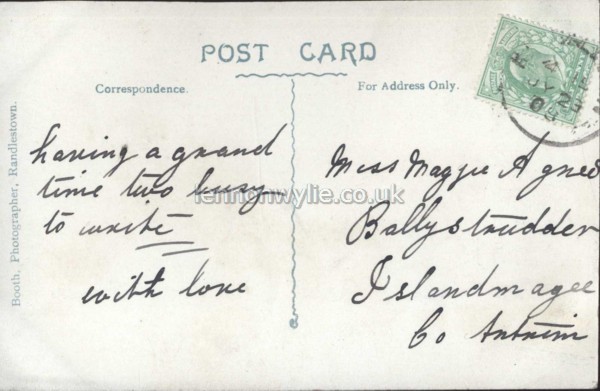 POST CARD
Correspondence.
For Address Only.
Booth, Photographer, Randlestown.
having a grand
time two busy
to write
with love
Miss Maggie Agnew
Ballystrudder
Islandmagee
Co Antrim
lennonwylie.co.uk